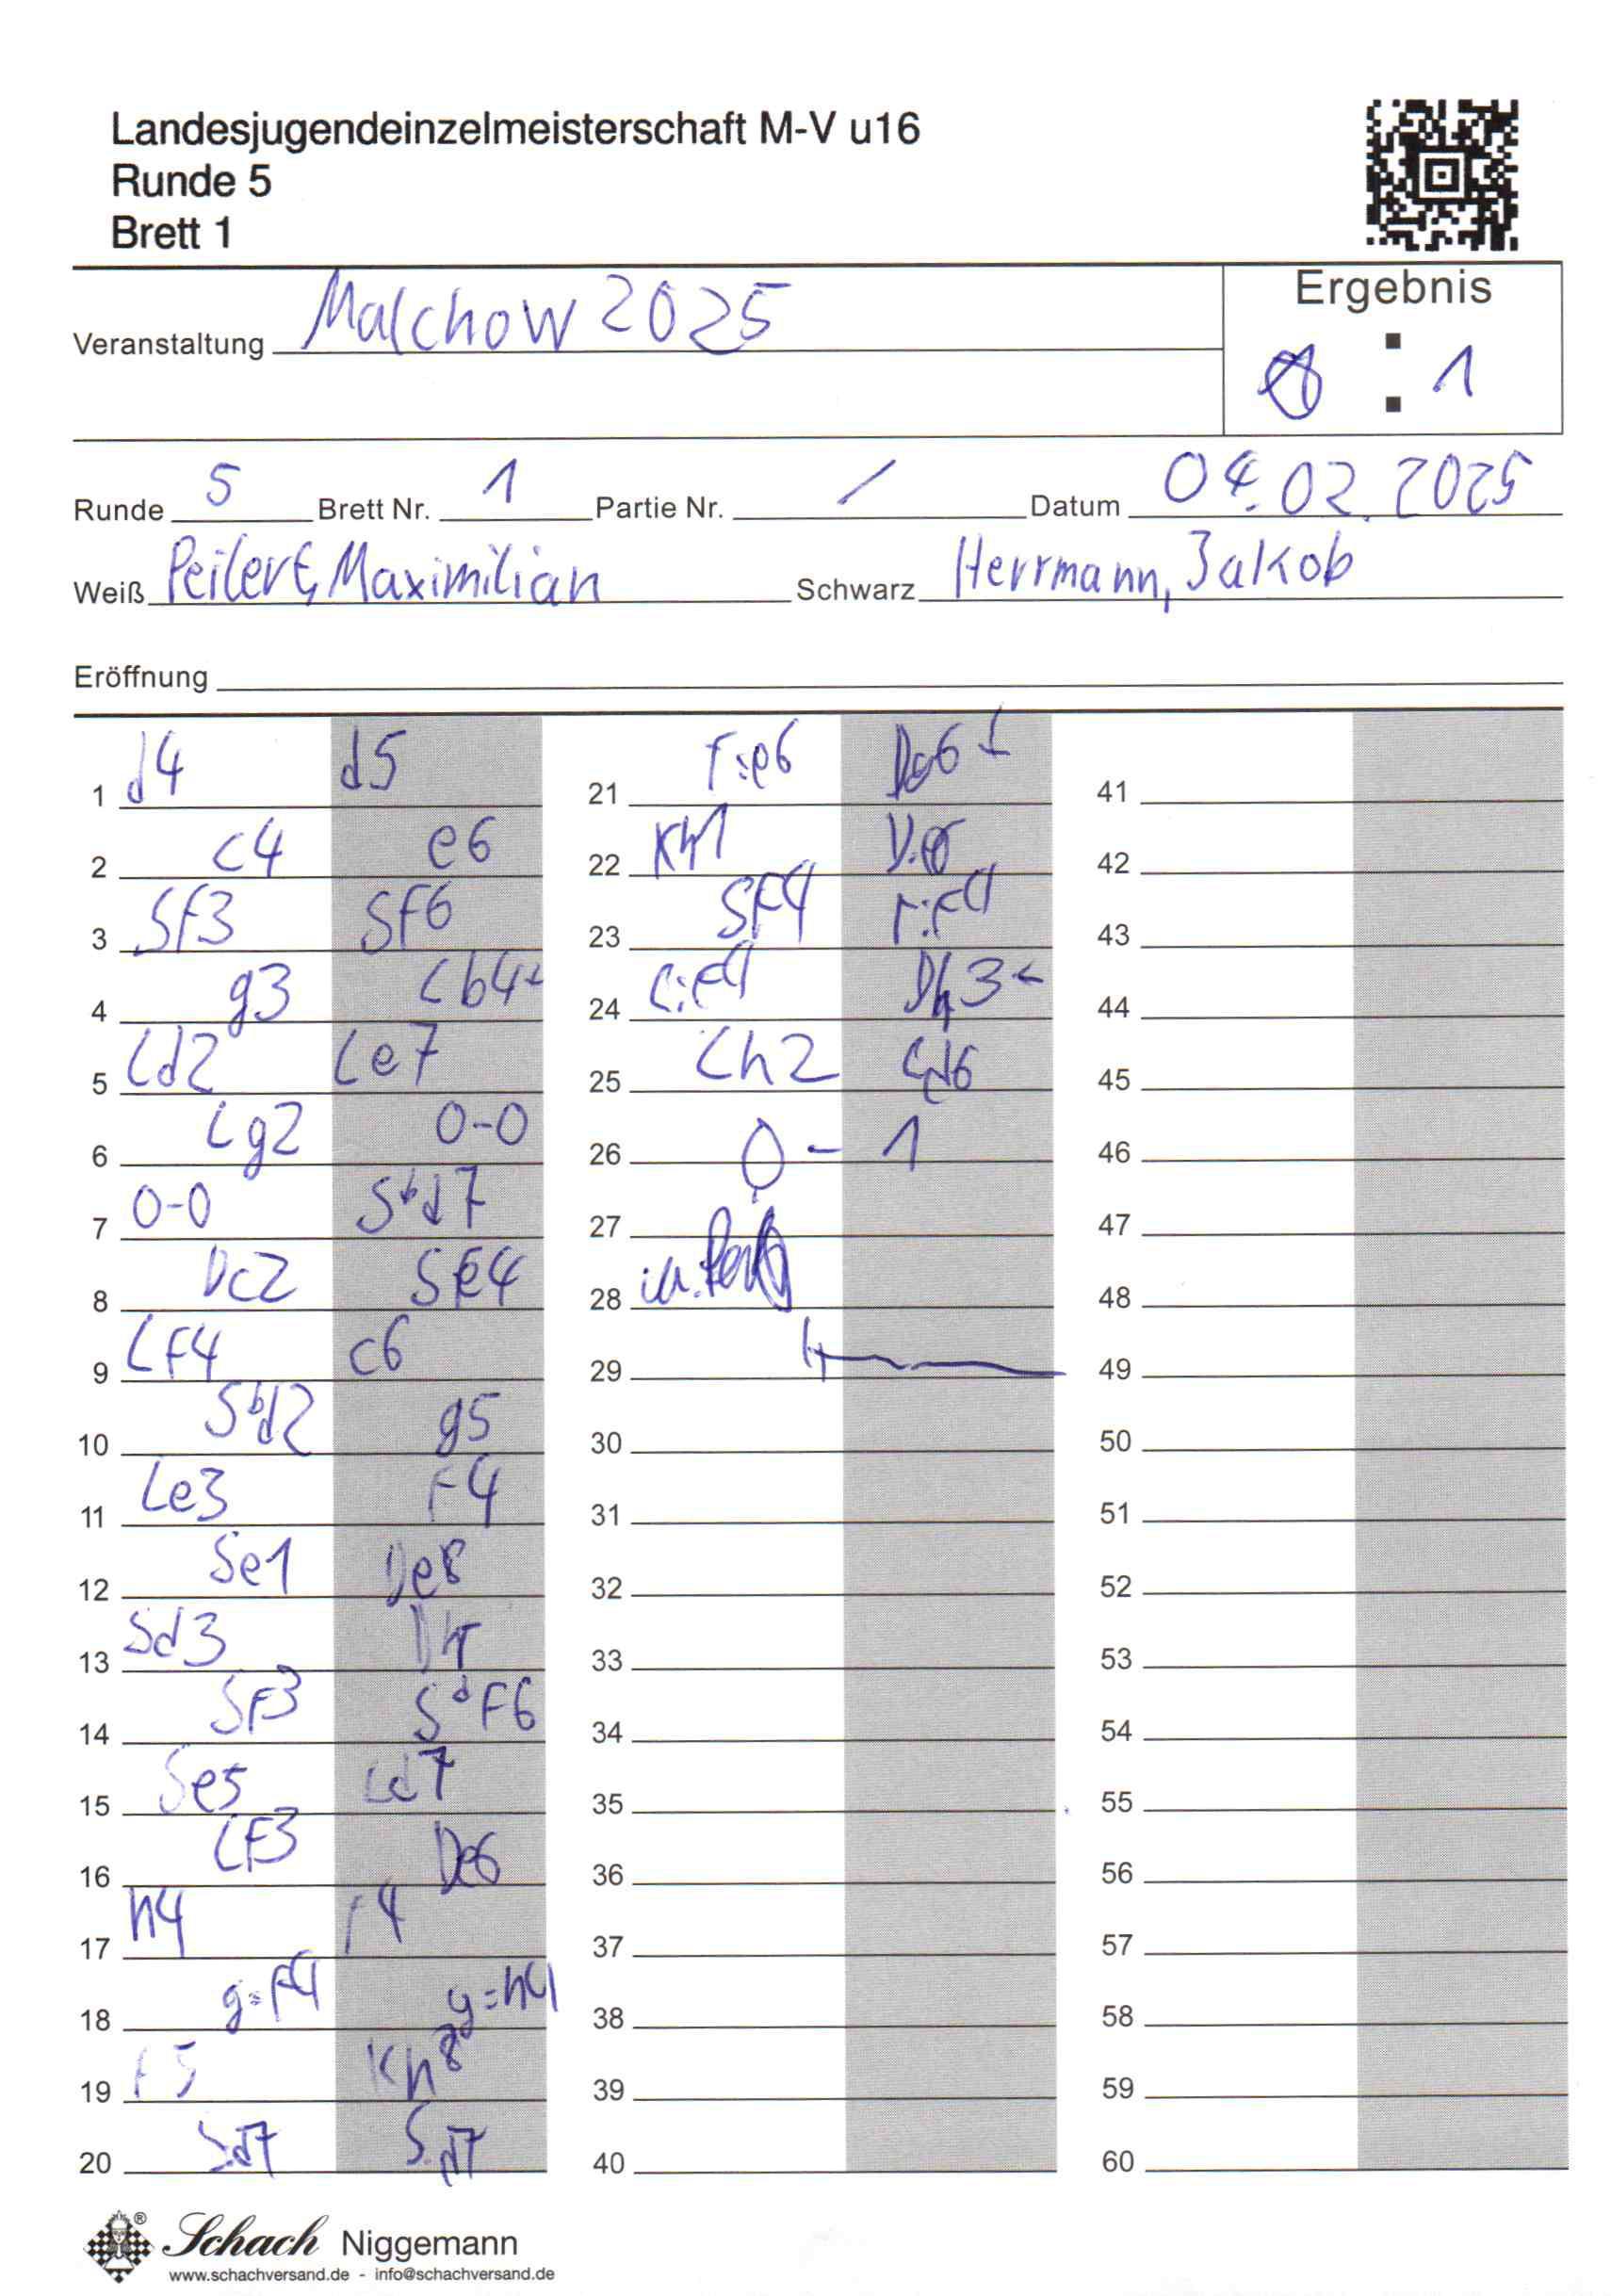 Landesjugendeinzelmeisterschaft M-V u16
Runde 5
Brett 1
Veranstaltung Malchow 2025
Ergebnis
0 : 1
Runde 5 Brett Nr. 1 Partie Nr. / Datum 04.02.2025
Weiß Peilert, Maximilian Schwarz Herrmann, Jakob
Eröffnung
1 d4 d5
2 c4 e6
3 Sf3 Sf6
4 g3 Lb4+
5 Ld2 Le7
6 Lg2 0-0
7 0-0 Sbd7
8 Dc2 Se4
9 Lf4 c6
10 Sbd2 g5
11 Le3 F4
12 Se1 De8
13 Sd3
14 Sf3 SdF6
15 Se5 Ld7
16 LF3
17 h4 f4
18 g:F4 g:h4
19 F5 Kh8
20 S:d7 S:d7
21 f:e6 Dg6+
22 Kh1
23 SF4 T:F4
24 L:F4 Dh3+
25 Lh2 Ld6
26 0 - 1
27
28
29
30
31
32
33
34
35
36
37
38
39
40
41
42
43
44
45
46
47
48
49
50
51
52
53
54
55
56
57
58
59
60
Schach Niggemann
www.schachversand.de - info@schachversand.de